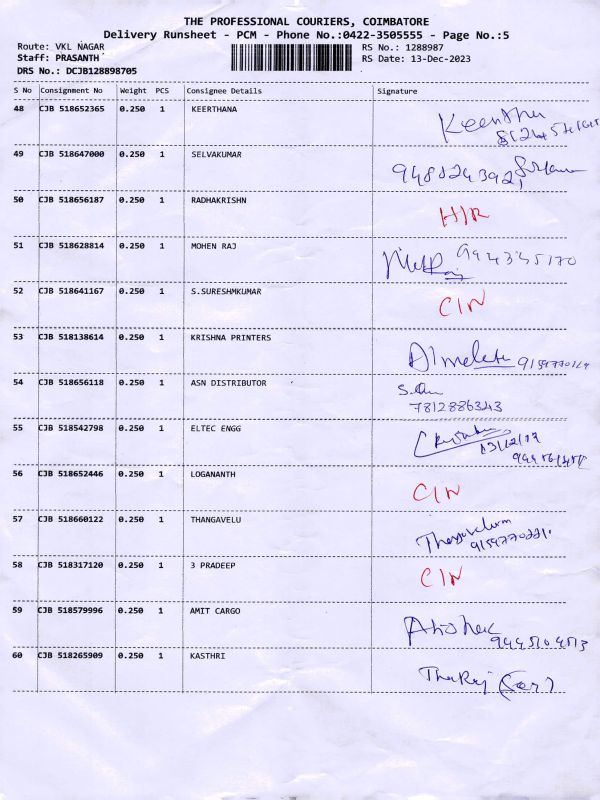 THE PROFESSIONAL COURIERS, COIMBATORE
Delivery Runsheet - PCM - Phone No.:0422-3505555 - Page No.:5
Route: VKL NAGAR RS No.: 1288987
Staff: PRASANTH RS Date: 13-Dec-2023
DRS No.: DCJB128898705
S No Consignment No Weight PCS Consignee Details Signature
48 CJB 518652365 0.250 1 KEERTHANA Keerthu
49 CJB 518647000 0.250 1 SELVAKUMAR 9488243921
50 CJB 518656187 0.250 1 RADHAKRISHN H/R
51 CJB 518628814 0.250 1 MOHEN RAJ 994345170
52 CJB 518641167 0.250 1 S.SURESHMKUMAR CIN
53 CJB 518138614 0.250 1 KRISHNA PRINTERS
54 CJB 518656118 0.250 1 ASN DISTRIBUTOR
7812886343
55 CJB 518542798 0.250 1 ELTEC ENGG
56 CJB 518652446 0.250 1 LOGANANTH CIN
57 CJB 518660122 0.250 1 THANGAVELU
9159770221
58 CJB 518317120 0.250 1 3 PRADEEP CIN
59 CJB 518579996 0.250 1 AMIT CARGO
9445104513
60 CJB 518265909 0.250 1 KASTHRI